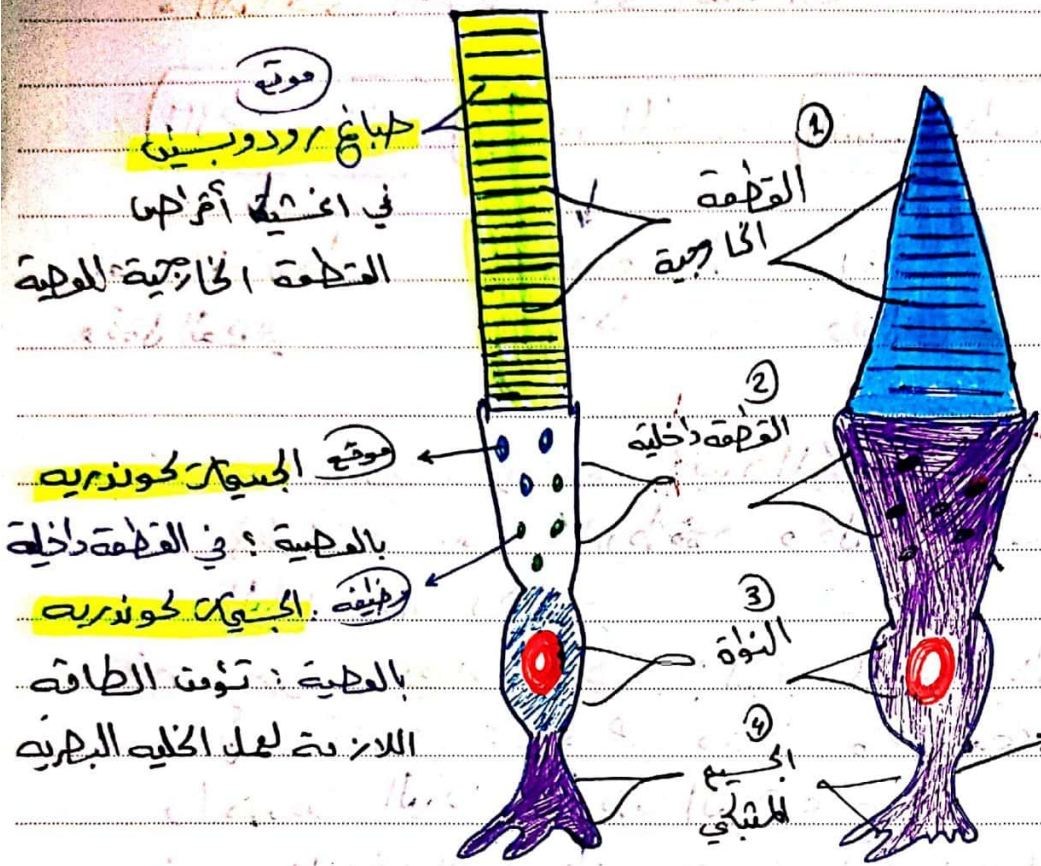 موقع
صباغ رودوبسين
في اغشية أقراص
القطعة الخارجية للعصية
موقع
الجسيمات لكوندريه
بالعصية : في القطعة داخلية
وظيفه
الجسيمات لكوندريه
بالعصية : تؤمن الطاقة
اللازمة لعمل الخليه البصريه
1
القطعة
الخارجية
2
القطعة داخلية
3
النواة
4
الجسيم
المشبكي